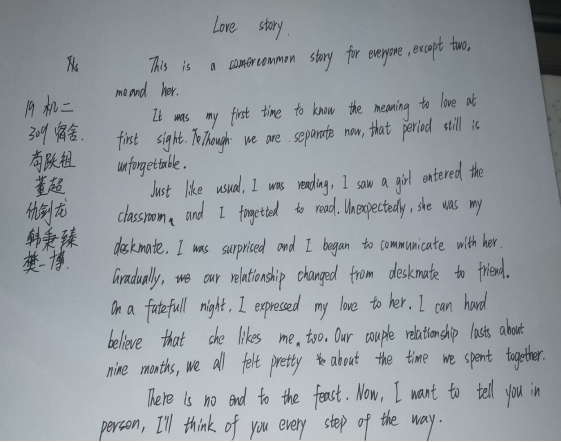 Love story.
This is a common story for everyone, except two,
me and her.
It was my first time to know the meaning to love at
first sight. Though we are separate now, that period still is
unforgettable.
Just like usual, I was reading, I saw a girl entered the
classroom, and I forgetted to read. Unexpectedly, she was my
deskmate. I was surprised and I began to communicate with her.
Gradually, our relationship changed from deskmate to friend.
On a fatefull night, I expressed my love to her. I can hard
believe that she likes me, too. Our couple relationship lasts about
nine months, we all felt pretty about the time we spent together.
There is no end to the feast. Now, I want to tell you in
person, I'll think of you every step of the way.
19 机二
309 宿舍.
尚跃祖
董超
仇剑龙
韩秉臻
樊一博